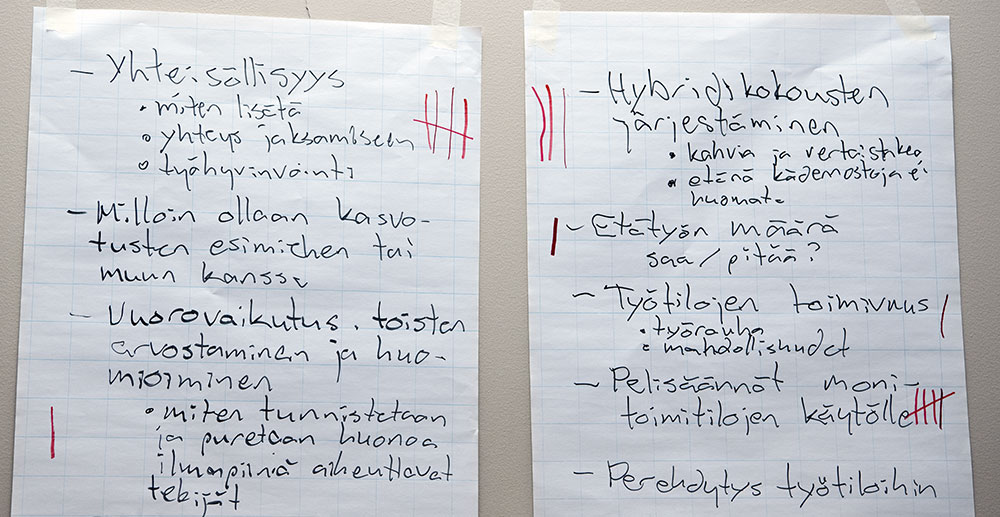 - Yhteisöllisyys
• miten lisätä
• yhteys jaksamiseen
• työhyvinvointi
- Milloin ollaan kasvo-
tusten esimiehen tai
muun kanssa
- Vuorovaikutus, toisten
arvostaminen ja huo-
mioiminen
• miten tunnistetaan
ja puretaan huonoa
ilmapiiriä aiheuttavat
tekijät
- Hybridikokousten
järjestäminen
• kahvia ja vertaistukea
• etänä kädennostoja ei
huomata
- Etätyön määrä
saa / pitää?
- Työtilojen toimivuus
• työrauha
• mahdollisuudet
- Pelisäännöt moni-
toimitilojen käytölle
- Perehdytys työtiloihin